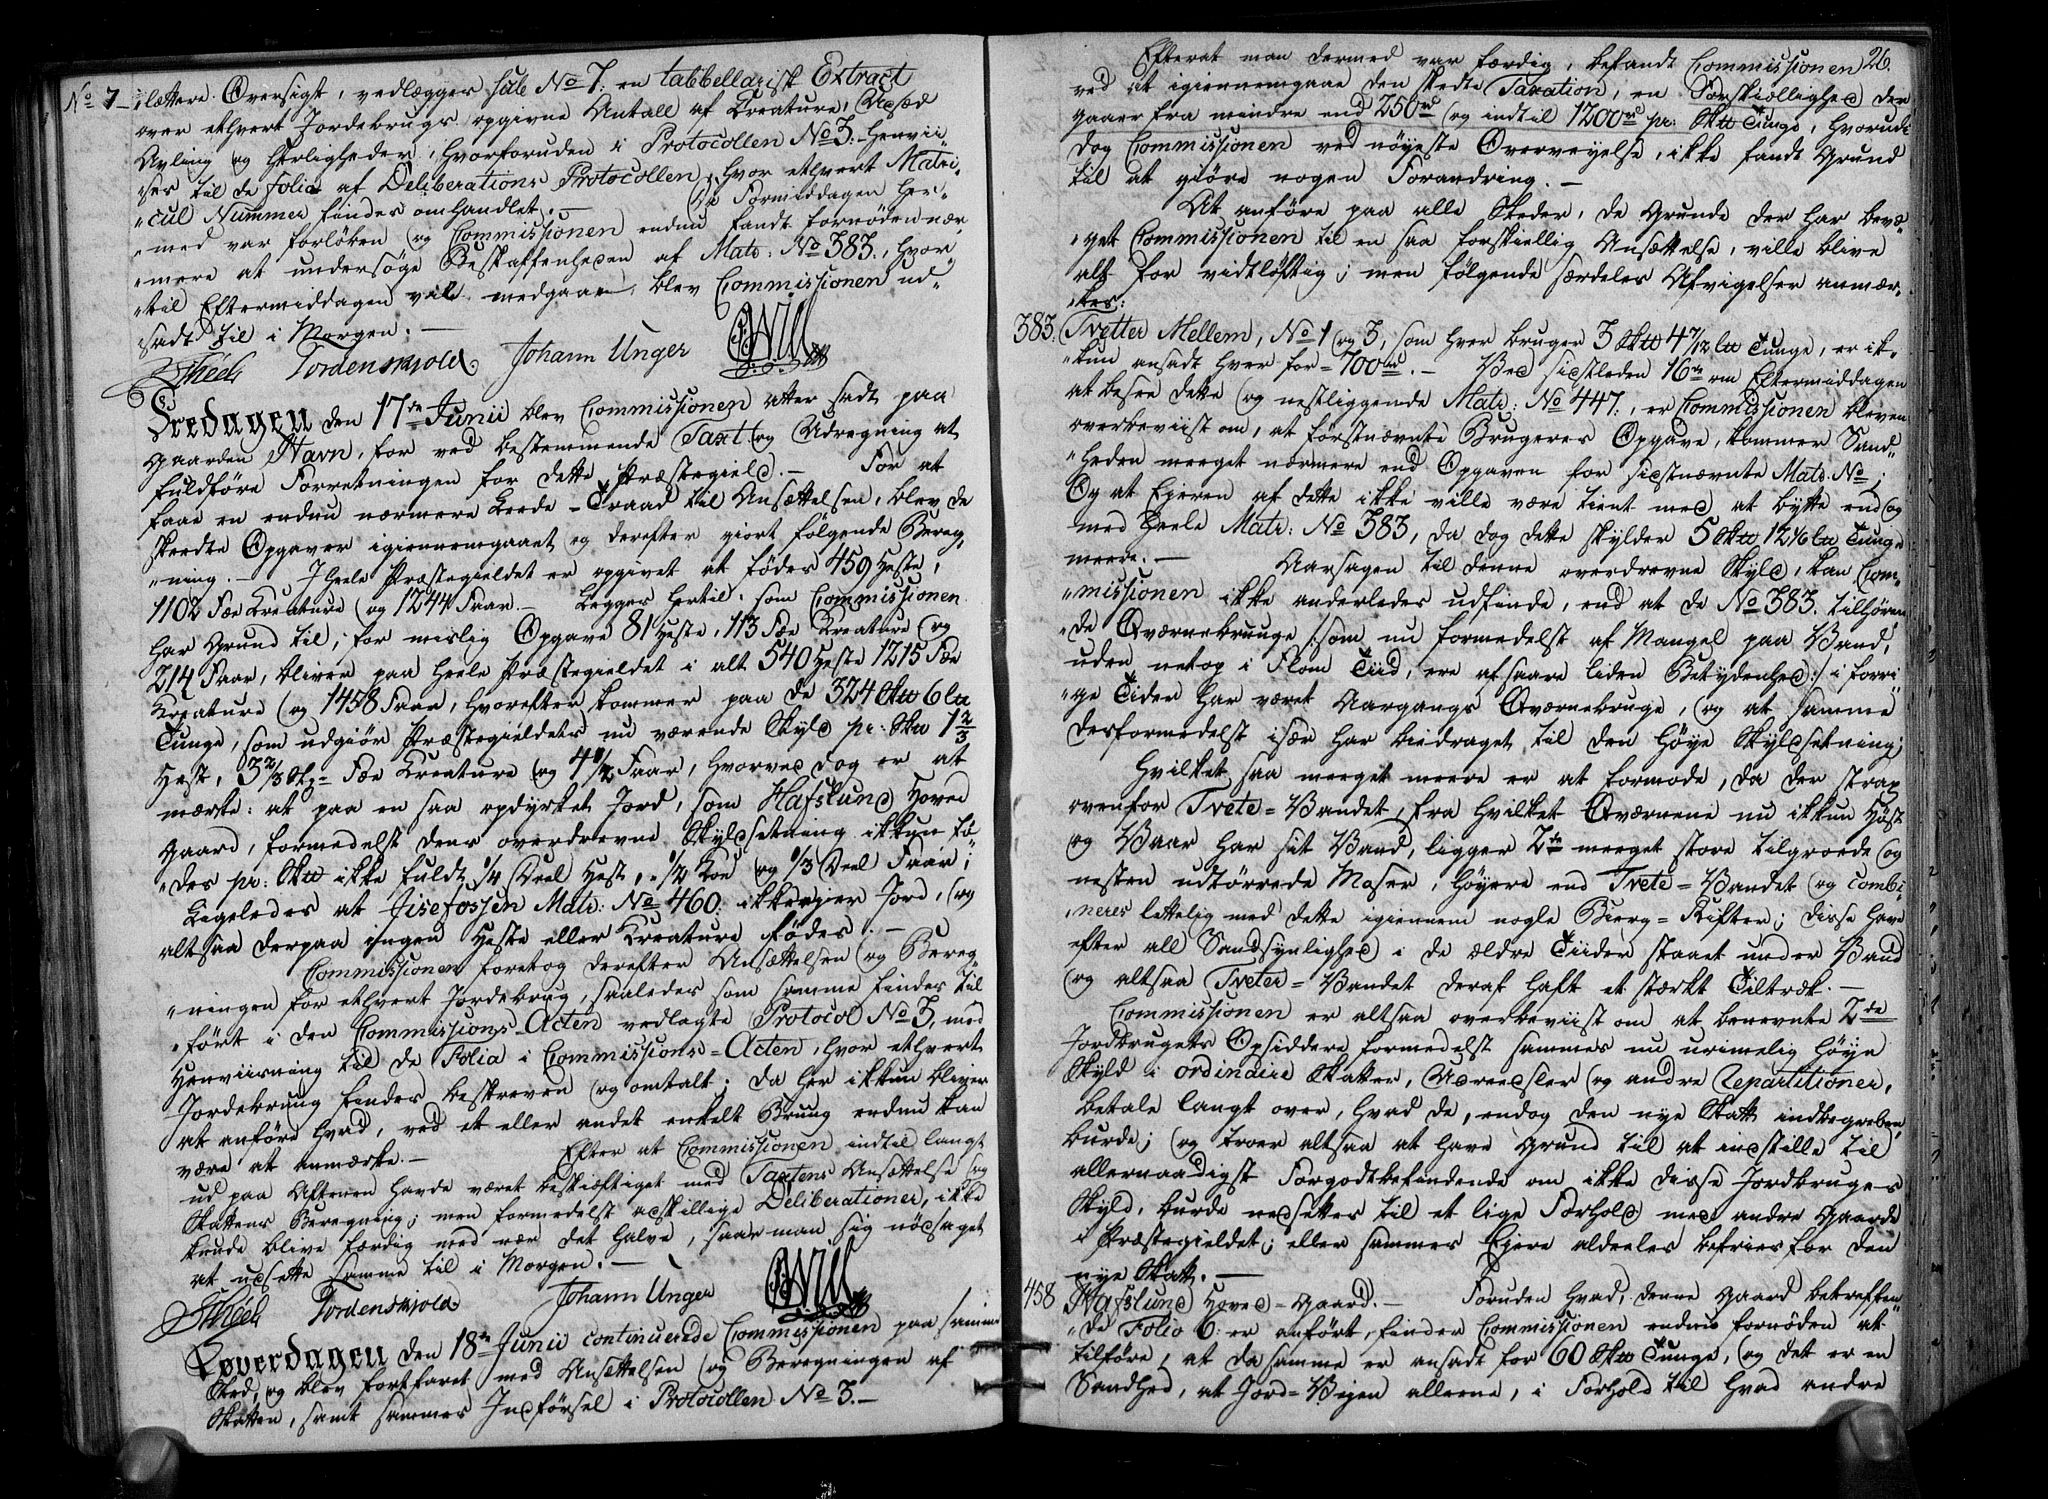 No 7 lættere Oversigt, vedlægger sub No 7: en tabbellarisk Extract
over ethvert Jordebrugs opgivne Antall af Creature, Udsæd
Avling og Herligheder, hvorforuden i Protocollen No 3: henvii-
ses til de folia af Deliberations Protocollen, hvor ethvert Matri-
"cul Nummer findes omhandlet. — Da Formiddagen her-
"med var forløben og Commissionen endnu fandt fornøden nær-
"mere at undersøge Beskaffenheden af Matr: No 383., hvor-
"til Eftermiddagen vil medgaae, blev Commissionen ud-
sadt til i Morgen. —
Scheel Tordenskjold. Johann Unger Will
Fredagen den 17de Junii blev Commissionen atter sadt paa
Gaarden Navn, for ved bestemmende Taxt og Udregning at
fuldføre Forretningen for dette Præstegield. — For at
faae en endnu nærmere Leede-Traad til Ansættelsen, blev de
skeedte Opgaver igiennemgaaet og derefter giort følgende Bereg-
"ning. — I heele Præstegieldet er opgivet at fødes 459 Heste,
1102 Fæe Creature og 1244 Faar. — Legges hertil, som Commissionen
har Grund til, for mislig Opgave 81 Heste, 113 Fæe Kreature og
214 Faar, bliver paa heele Præstegieldet i alt 540 Heste 1215 Fæe
Kreature og 1458 Faar, hvorefter kommer paa de 324 Sktt 6 ltt
Tunge, som udgiør Præstegieldets nu værende Skyld pr: Sktt 1 2/3
Hest, 3 2/3 Stk= Fæe Kreature og 4 1/2 Faar, hvorved dog er at
mærke: at paa en saa opdyrket Jord, som Hafslund Hoved
Gaard, formedelst dens overdrevne Skyldsetning ikkun fø-
"des pr: Sktt ikke fuldt 1/4 Deel Hest, 1/2 Koe og 1/3 Deel Faar;
Ligeledes at Fisefossen Matr: No 460: ikke ejer Jord, og
altsaa derpaa ingen Heste eller Kreature fødes. —
Commissionen foretog derefter Ansættelsen og Bereg-
"ningen for ethvert Jordebrug, saaledes som samme findes til-
"ført i den Commissions-Acten vedlagte Protocol No 3, med
Henviisning til de Folia i Commissions=Acten, hvor ethvert
Jordebrug findes beskreven og omtalt; da her ikkun bliver
at anføre hvad, ved et eller andet enkelt Brug endnu kan
være at anmærke. — Efter at Commissionen indtil langt
ud paa Aftenen havde været beskiæftiget med Taxtens Ansættelse og
Skattens Beregning; men formedelst adskillige Deliberationer, ikke
kunde blive færdig med nær det halve, saae man sig nødsaget
at udsette samme til i Morgen. —
Scheel Tordenskjold. Johann Unger Will
Løverdagen den 18de Junii continuerede Commissionen paa samme
Sted, og blev fortfaret med Ansættelsen og Beregningen af
Skatten, samt sammes Indførsel i Protocollen No 3. —
26.
Efterat man dermed var færdig, befandt Commissionen
ved at igiennemgaae den skedte Taxation, en Forskiellighed der
gaaer fra mindre end 250rd og indtil 1200rd pr: Sktt Tunge, hvorudi
dog Commissionen ved nøyeste Overveyelse, ikke fandt Grund
til at giøre nogen Forandring. —
At anføre paa alle Steder, de Grunde der har bevæ-
"get Commissionen til en saa forskiellig Ansættelse, ville blive
alt for vidtløftig; men følgende særdeles Afvigelser anmær-
"kes:
383. Tvetter Mellem, No 1 og 3, som hver bruger 3 Sktt 4 7/12 ltt Tunge, er ik-
"kun ansadt hver for =700rd. — Ved sidstleden 16de om Eftermiddagen
at besee dette og nestliggende Matr: No 447:, er Commissionen bleven
overbeviist om, at førstnævnte Brugeres Opgave, kommer Sand-
"heden meeget nærmere end Opgaven for sidstnævnte Matr. No;
Og at Ejeren af dette ikke ville være tient med at bytte end og
med heele Matr: No 383, da dog dette skylder 5 Sktt 12 1/6 ltt Tunge
meere. — Aarsagen til denne overdrevne Skyld, kan Com-
"missionen ikke anderledes udfinde, end at de No 383. tilhøren-
"de Qværnebruuge /:som nu formedelst af Mangel paa Vand,
uden netop i Flom Tiid, ere af saare liden Betydenhed:/ i forri-
"ge Tider har været Aargangs Qværnebruge, og at samme
desformedelst især har bidraget til den høye Skyldsetning;
Hvilket saa meeget meere er at formode, da der strax
ovenfor Tvete=Vandet, fra hvilket Qværnene nu ikkun Høst
og Vaar har sit Vand, ligger 2de meeget store tilgroede og
nesten udtørrede Moser, høyere end Tvete=Vandet og combi-
"neres lettelig med dette igiennem nogle Bierg=Rifter; disse have
efter all Sandsynlighed i de ældre Tiider staaet under Vand
og altsaa Tveter=Vandet deraf haft et stærkt Tiltræk. —
Commissionen er altsaa overbeviist om at benevnte 2de
Jordbrugets Opsiddere formedelst sammes nu urimelig høye
Skyld i ordinaire Skatter, Udreedsler og andre Repartitioner,
betale langt over, hvad de, endog den nye Skatt indbegreben,
burde; og troer altsaa at have Grund til at indstille til
allernaadigst Forgodtbefindende om ikke disse Jordbruges
Skyld, burde nedsettes til et lige Forhold med andre Gaarde
i Præstegieldet; eller sammes Ejere aldeeles befries for den
nye Skatt. —
458 Hafslund Hoved=Gaard. — Foruden hvad, denne Gaard betreffen-
"de Folio 6: er anført, finder Commissionen endnu fornøden at
tilføre, at da samme er ansadt for 60 Sktt Tunge, og det er en
Sandhed, at Jord=Vejen allene, i Forhold til hvad andre